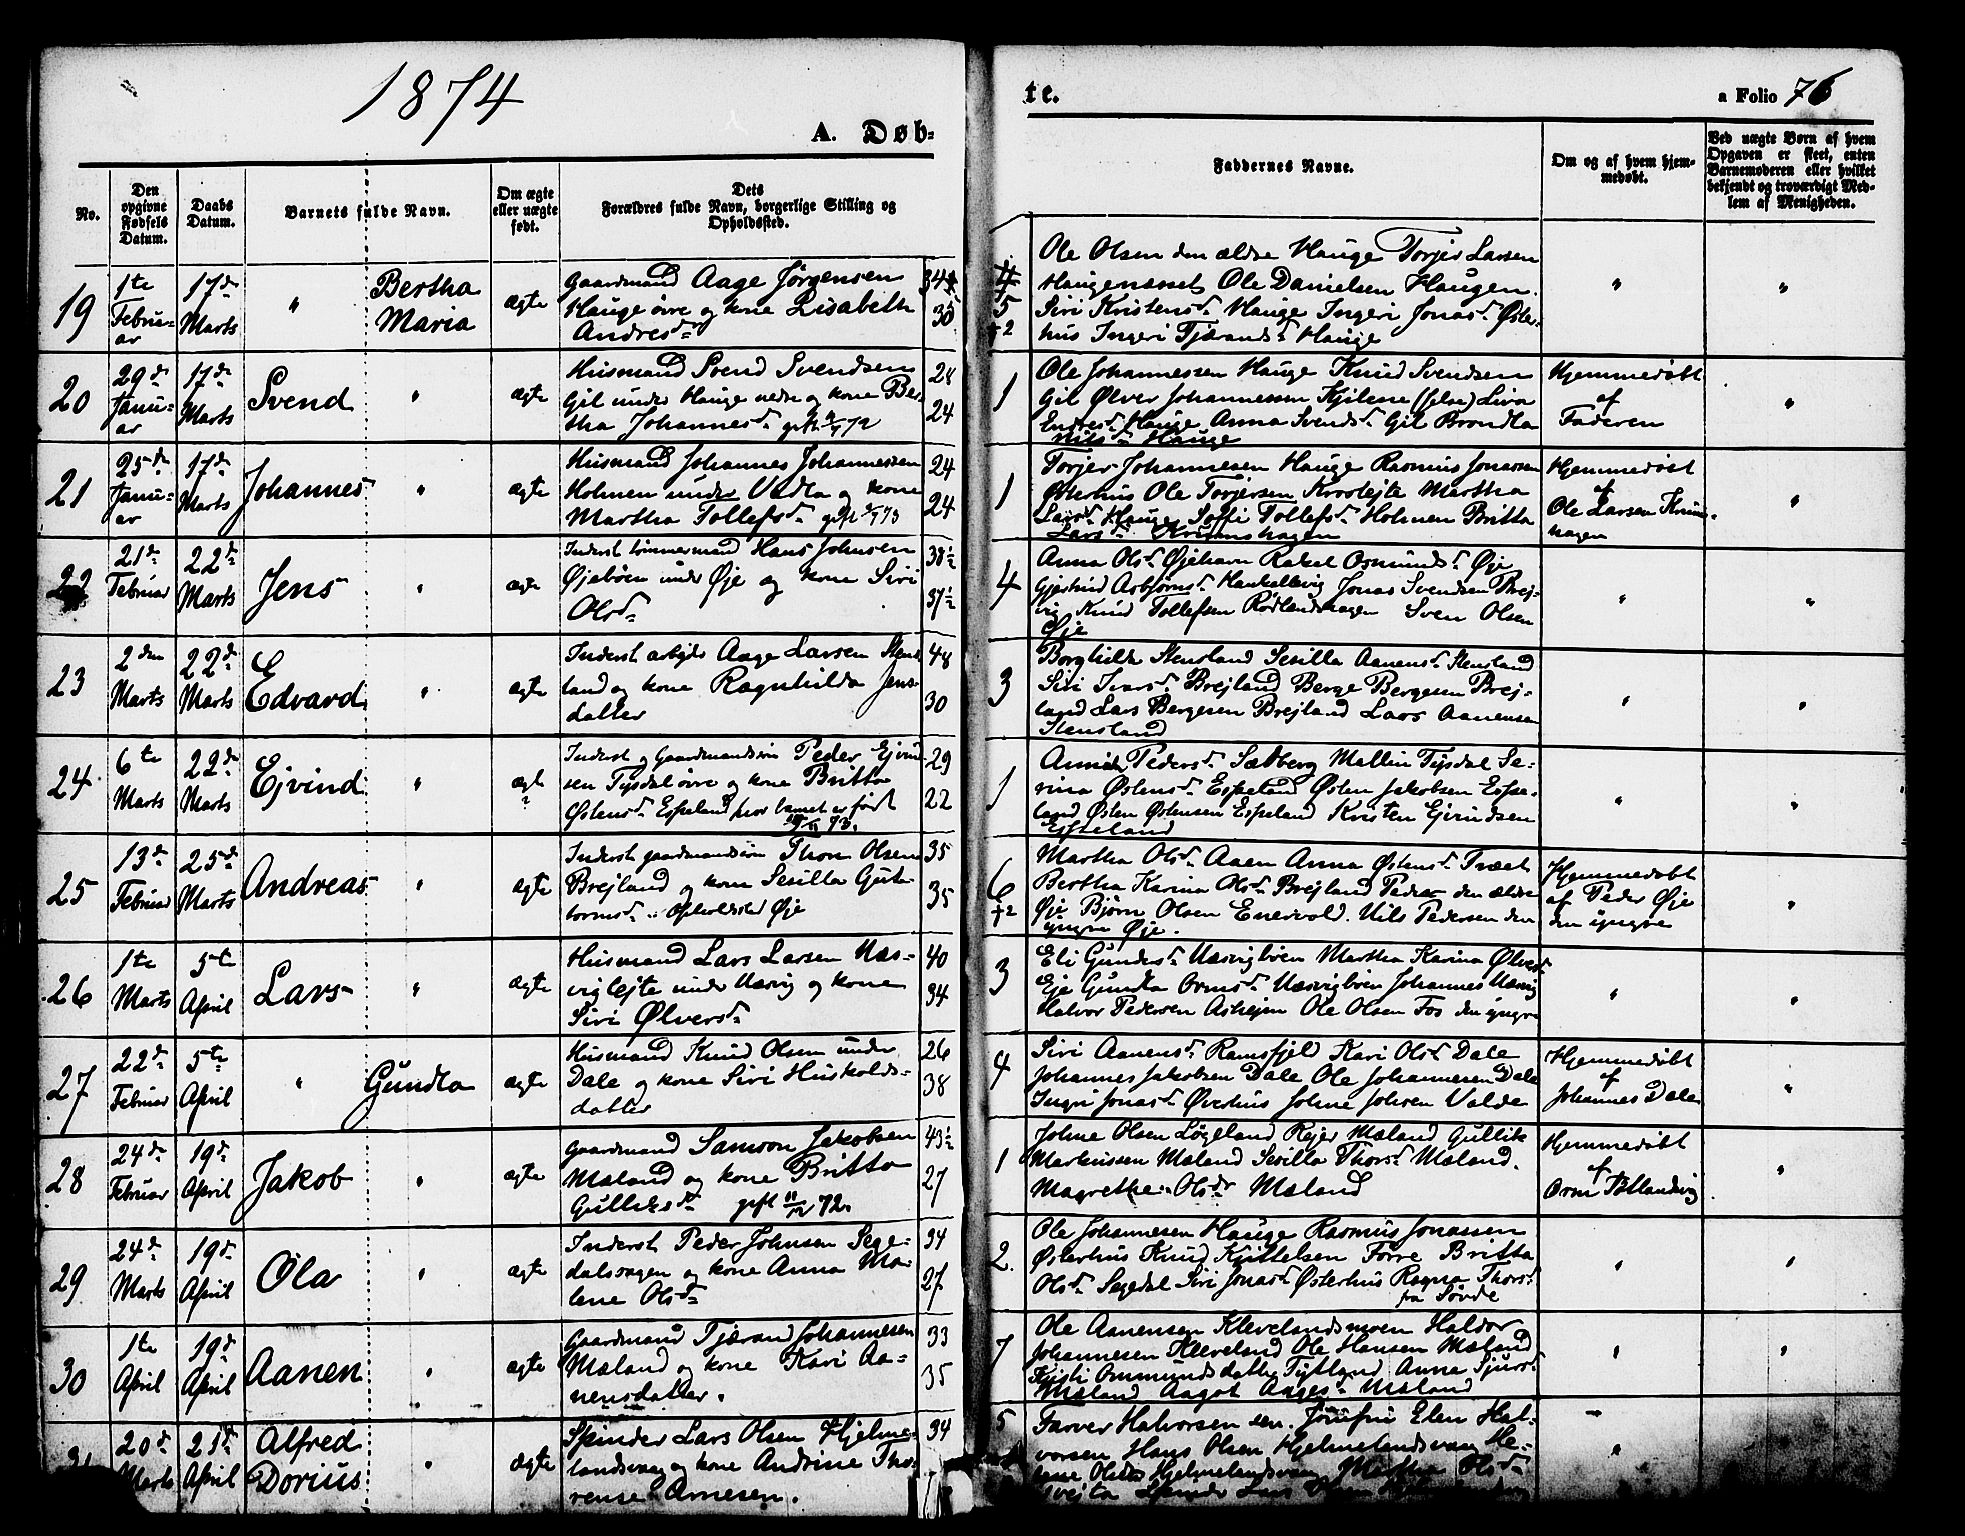 1874
A. Døb-
No.
Den opgivne Fødsels Datum.
Daabs Datum.
Barnets fulde Navn.
Om ægte eller uægte født.
Dets Forældres fulde Navn, borgerlige Stilling og Opholdssted.
te.
a Folio 76
Faddernes Navne.
Om og af hvem hjem-
medøbt.
Ved uægte Børn af hvem
Opgaven er skeet, enten
Barnemoderen eller hvilket
bekjendt og troværdigt Med-
lem af Menigheden.
19
1te Februar
17de Marts
"
Bertha Maria
ægte
Gaardmand Aage Jørgensen
Hauge øvre og kone Lisabeth
Andresd.
30
5
+2
Ole Olsen den ældre Hauge Torjer Larsen
Haugenæsset Ole Danielsen Haugen.
Siri Kristensd. Hauge Ingeri Jonasd. Øster-
hus Ingeri Tjærandsd. Hauge
"
"
20
29de Januar
17de Marts
Svend
"
ægte
Husmand Svend Svendsen
Gil under Hauge nedre og kone Ber-
tha Johannesd. gift
28
24
1
Ole Johannessen Hauge Knud Svendsen
Gil Ølver Johannessen Kjilene Liva
Endresd. Hauge Anna Svendsd. Gil Brondla
Nilsd. Hauge
Hjemmedøbt
af
Faderen
"
21
25de Januar
17de Marts
Johannes
"
ægte
Husmand Johannes Johannessen
Holmen under Vadla og kone
Martha Tollefsd. gift
24
24
1
Torjer Johannesen Hauge Rasmus Jonassen
Østerhus Ole Torjersen Kroslejte Martha
Larsd. Hauge Soffi Tollefsd. Holmen Britta
Larsd. Krumshagen
Hjemmedøbt
af
Ole Larsen Krums-
hagen
"
22
21de Februar
22de Marts
Jens
"
ægte
Inderst tømmermand Hans Johnsen
Øjebøen under Øje og kone Siri
Olsd.
38½
37½
4
Anna Olsd. Øjehavn Rakel Osmundsd. Øje
Gjertrud Asbjørnsd. Jonas Svendsen Brej-
vig Knud Tollefsen Rødlandshagen Sven Olsen
Øje
"
"
23
2den Marts
22de Marts
E
Edvard
"
ægte
Inderst arbejds Aage Larsen Stens-
land og kone Ragnhilda Jens-
datter
48
30
3
Borghilda Stensland Sesilla Aanensd. Stensland
Siri Ivarsd. Brejland Berge Bergesen Brej-
land Lars Bergesen Brejland Lars Aanensen
Stensland
"
"
24
6te Marts
22de Marts
Ejvind
"
ægt
Inderst og Gaardmandssøn Peder Ejvin-
sen Tysdal øvre og kone Britta
Østensd. Espeland, hvor barnet er født
73.
29
22
1
Anna Pedersd. Sædberg Mallin Tysdal Se-
rina Østensd. Espeland Østen Jakobsen Espe-
land Østen Østensen Espeland Kristen Ejvindsen
Espeland
"
"
25
13de Februar
25de Marts
Andreas
"
ægte
Inderst gaardmandssøn Thore Olsen
Brejland og kone Sesilla Gut-
tormsd. Opholdsted Øje
35
35
6
+2
Martha Olsd. Aaen Anna Østensd. Træet
Bertha Karina Olsd. Brejland Peder den ældre
Øje Bjørn Olsen Enervold. Nils Pedersen den
yngre Øje.
Hjemmedøbt
af Peder Øje
den yngre
"
26
1te Marts
5te April
Lars
"
ægte
Husmand Lars Larsen Næs-
viglejte under Næsvig og kone
Siri Ølversd.
40
34
3
Eli Gundersd. Næsvigbøen Martha Karina Ølversd.
Eje Gundla Ormsd. Næsvigbøen Johannes Næsvig
Halvor Pedersen Askejen Ole Olsen Fos den yngre
"
"
27
22de Februar
5te April
"
Gundla
ægte
Husmand Knud Olsen under
Dale og kone Siri Huskolds-
datter
26
38
4
Siri Aanensd. Ramsfjeld Kari Olsd. Dale
Johannes Jakobsen Dale Ole Johannesen Dale
Ingri Jonasd. Øverhus Johne Johnsen Valde
Hjemmedøbt
af
Johannes Dale
"
28
24de Februar
19de April
Jakob
"
ægte
Gaardmand Samson Jakobsen
Mæland og kone Britta
Gulliksd. gift 11/12 72.
43½
27
1
Johne Olsen Løgeland Rejer Mæland Gullik
Markussen Mæland Sesilla Thorsd. Mæland.
Magrethe Olsd. Mæland
Hjemmedøbt
af
Orm
"
29
24de Marts
19de April
Ola
"
ægte
Inderst Peder Johnsen Sege-
dalsvagen og kone Anna Ma-
lene Olsd.
34
27
2.
Ole Johannesen Hauge Rasmus Jonassen
Østerhus Knud Kjittelsen Førre Britta
Olsd. Segedal Siri Jonasd. Østerhus Ragna Thorsd.
fra Søvde
"
"
30
1te April
19de April
Aanen
"
ægte
Gaardmand Tjæran Johannesen
Mæland og kone Kari Aa-
nensdatter.
33
35
7
Ole Aanensen Klevelandsmoen Haldor
Johannesen Kleveland Ole Hansen Mæland
Kjisti Ommundsdatter Tytland Anna Sjursd.
Mæland Aagot Aagesd. Mæland
"
"
20de Marts
21de April
Alfred
Dorius
"
ægte
Spinder Lars Olsen Hjelme-
landsvag og kone Andrine Tho-
rense Arnesen.
34
5
Farver Halvorsen sen. Jomfru Elen Hal-
vorsen Hans Olsen Hjelmelandsvag He-
Hjelmelandsvag Martha Olsd.
"